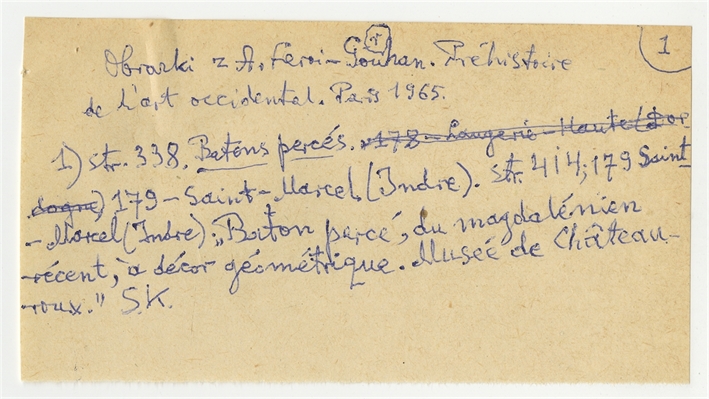 1
Obrazki z A. Leroi-Gourhan. Préhistoire
de l'art occidental. Paris 1965.
1) str. 338. Batons percés. 178 - Laugerie-Haute (Dor
dogne) 179 - Saint-Marcel (Indre). str. 414; 179 Saint
- Marcel (Indre): „Baton percé, du magdalénien
récent, à décor géométrique. Musée de Château-
roux." S.K.